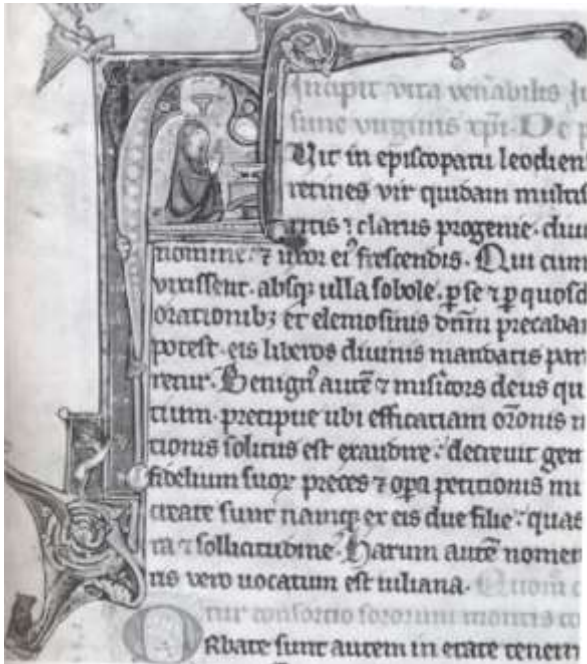 Incipit vita ven̄abilis Iu
virginis xp̄i. De p
Fuit in ep̄iscopatu leodien
retines vir quidam multū
⁊ clarus progenie. diui
nomine. ⁊ uxor ei⁹ frescendis. Qui cum
vixissent. absq; ulla sobole. p se ⁊ p quosd
orationib; et elemosinis dn̄m precaba
potest. eis liberos diuinis mandatis par
retur. Benign⁹ autē ⁊ misīcors deus qu
tium. precipue ubi efficatiam orōnis n
tionis solitus est exaudire. decreuit gen
fidelium suor preces ⁊ opa petitionis mu
create sunt namq; ex eis due filie. quas
ta ⁊ sollicitudine. Harum autē nomen
ris vero uocatum est iuliana. Quom c
tur consortio sororum montis co
Orbate sunt autem in etate tenerri